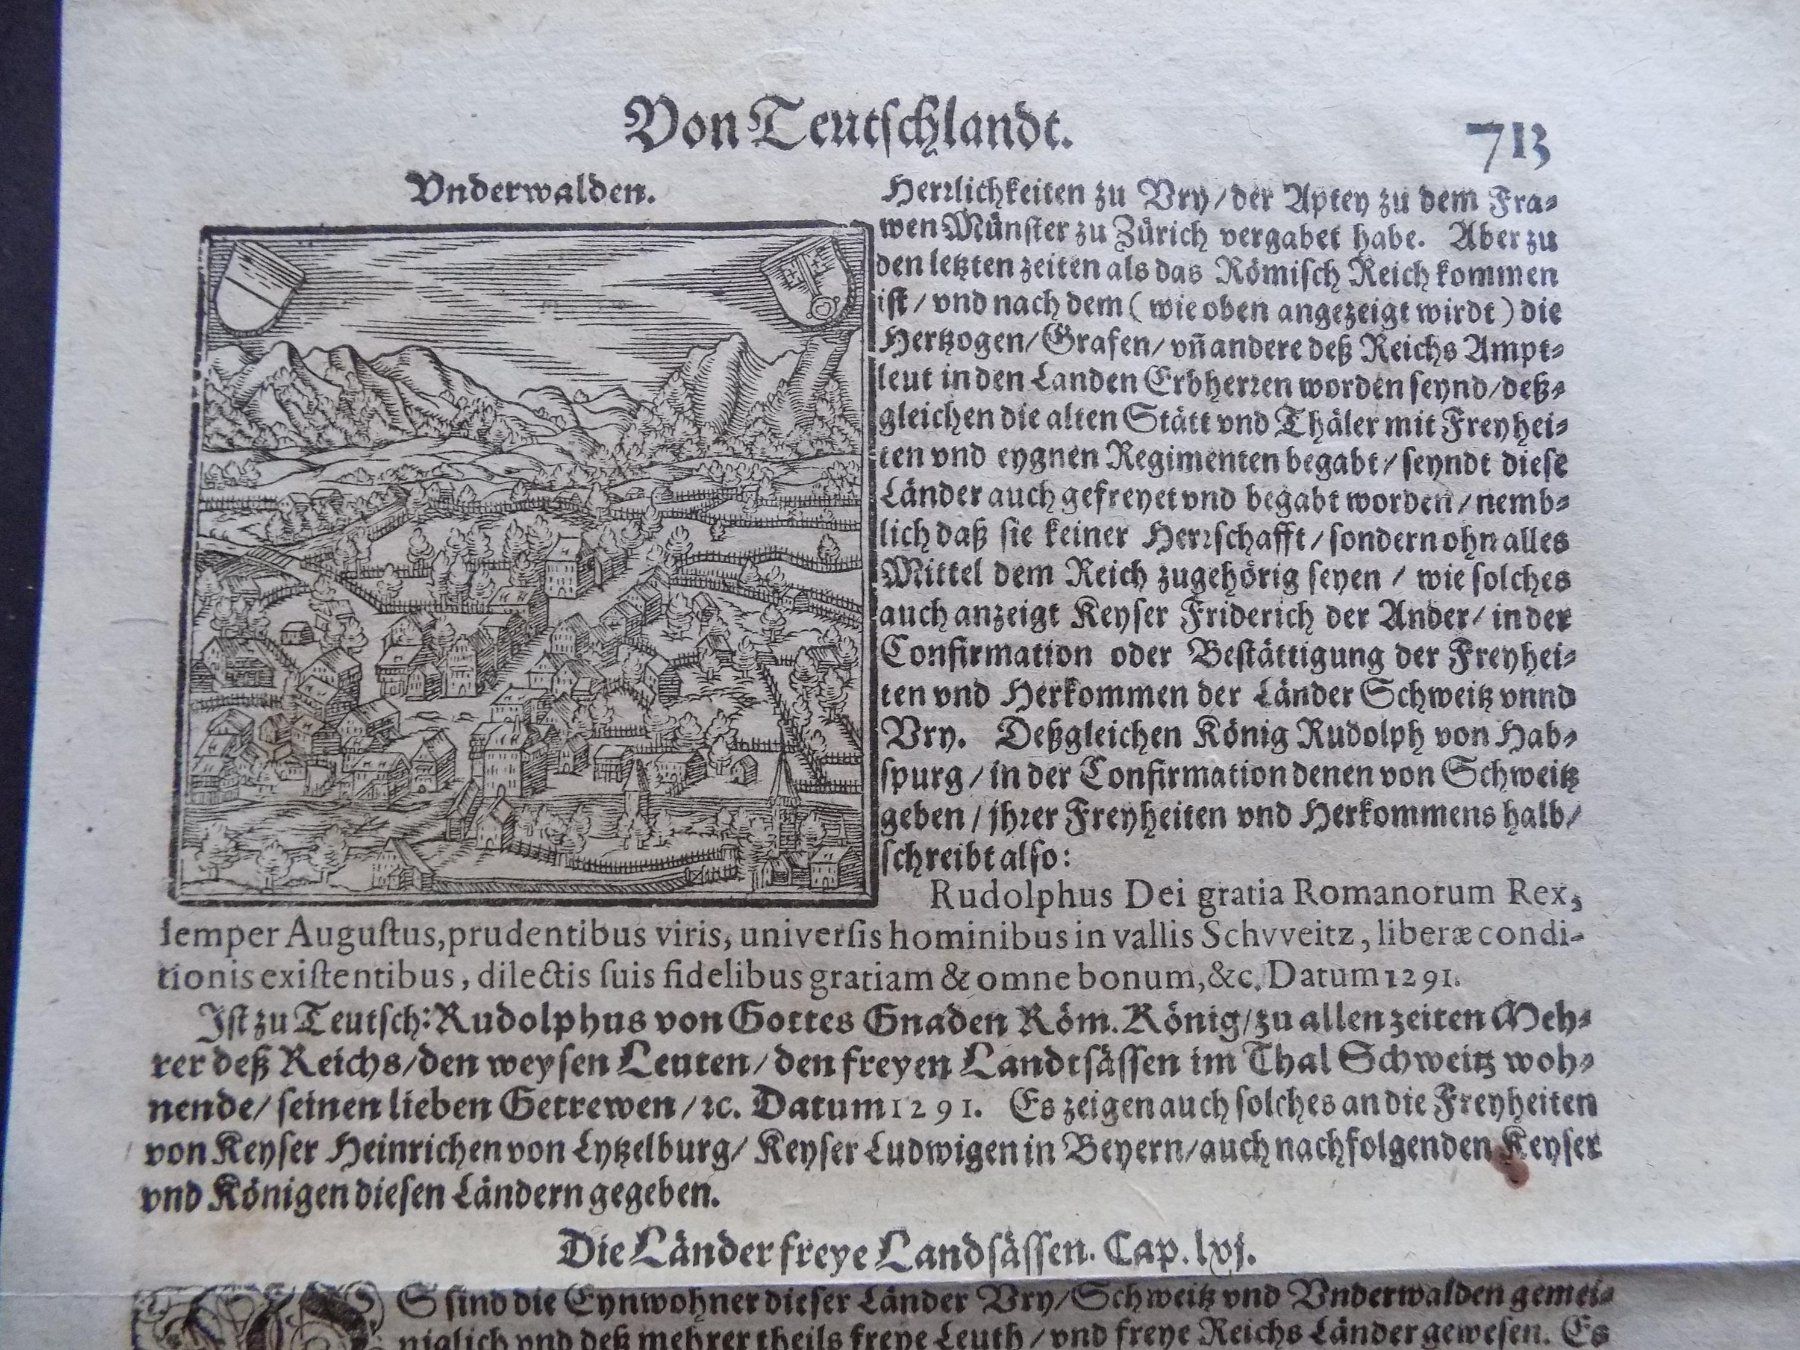 Von Teutschlandt.
713
Vnderwalden.
Herrlichkeiten zu Vry/der Aptey zu dem Fra-
wen Münster zu Zürich vergabet habe. Aber zu
den letzten zeiten als das Römisch Reich kommen
ist/vnd nach dem (wie oben angezeigt wirdt) die
Hertzogen/Grafen/vñ andere deß Reichs Ampt-
leut in den Landen Erbherren worden seynd/deß-
gleichen die alten Stätt vnd Thäler mit Freyhei-
ten vnd eygnen Regimenten begabt/seyndt diese
Länder auch gefreyet vnd begabt worden/nemb-
lich daß sie keiner Herrschafft/sondern ohn alles
Mittel dem Reich zugehörig seyen/wie solches
auch anzeigt Keyser Friderich der Ander/in der
Confirmation oder Bestättigung der Freyhei-
ten vnd Herkommen der Länder Schweitz vnnd
Vry. Deßgleichen König Rudolph von Hab-
spurg/in der Confirmation denen von Schweitz
geben/jhrer Freyheiten vnd Herkommens halb/
schreibt also:
Rudolphus Dei gratia Romanorum Rex,
semper Augustus, prudentibus viris, universis hominibus in vallis Schvveitz, liberæ condi-
tionis existentibus, dilectis suis fidelibus gratiam & omne bonum, &c. Datum 1291.
Ist zu Teutsch: Rudolphus von Gottes Gnaden Röm. König/zu allen zeiten Meh-
rer deß Reichs/den weysen Leuten/den freyen Landtsässen im Thal Schweitz woh-
nende/seinen lieben Getrewen/ꝛc. Datum 1291. Es zeigen auch solches an die Freyheiten
von Keyser Heinrichen von Lytzelburg/Keyser Ludwigen in Beyern/auch nachfolgenden Keyser
vnd Königen diesen Ländern gegeben.
Die Länder freye Landsässen. Cap. lvj.
ES sind die Eynwohner dieser Länder Vry/Schweitz vnd Vnderwalden gemei-
niglich vnd deß mehrer theils freye Leuth/vnd freye Reichs Länder gewesen. Es